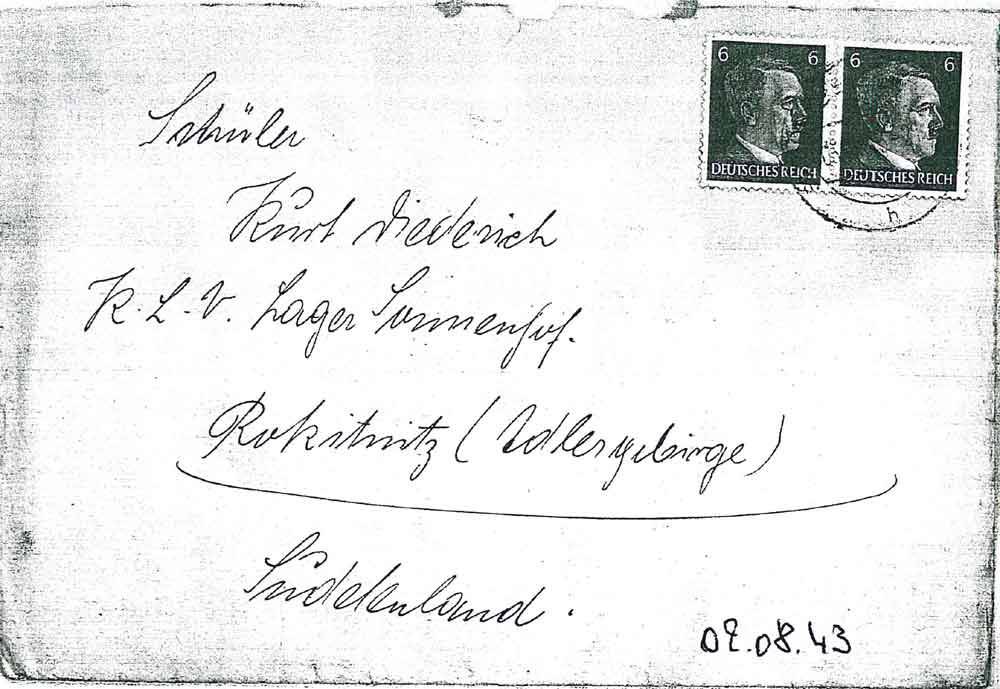 6 6 6 6
DEUTSCHES REICH DEUTSCHES REICH
h
Schüler
Kurt Diederich
K.L.V. Lager Sonnenhof.
Rokitnitz (Adlergebirge)
Sudetenland.
02.08.43